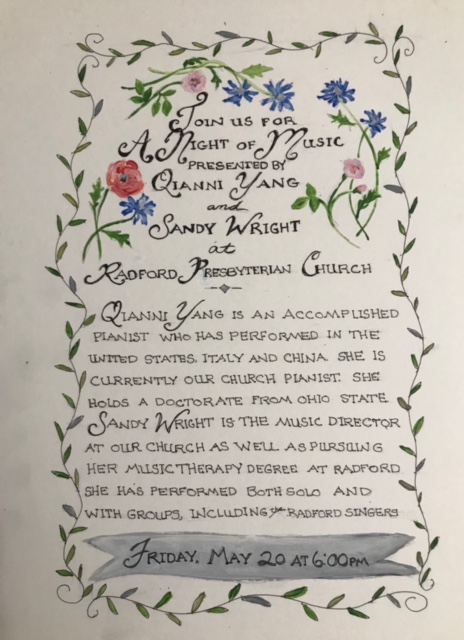 Join us for
A Night of Music
presented by
Qianni Yang
and
Sandy Wright
at
Radford Presbyterian Church
Qianni Yang is an accomplished
pianist who has performed in the
United States, Italy and China. She is
currently our church pianist. She
holds a doctorate from Ohio State.
Sandy Wright is the music director
at our church as well as pursuing
her music therapy degree at Radford.
She has performed both solo and
with groups, including the Radford Singers
Friday, May 20 at 6:00pm